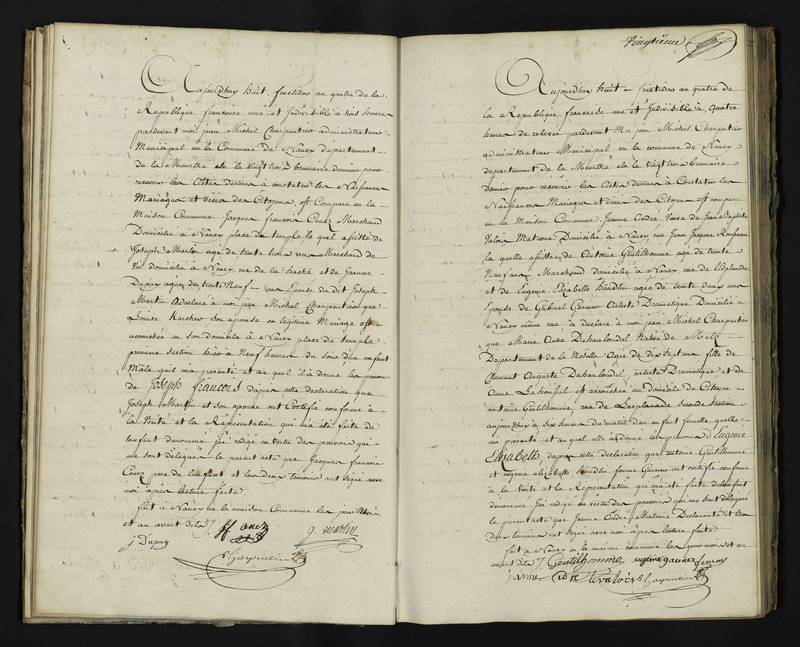 Aujourdhuy huit fructidor an quatre de la
Republique francaise une et Indivisible a trois heures
pardevant moi jean Michel Charpentier administrateur
Municipal en la Commune de Nancy departement
de la Meurthe elu le vingt trois brumaire dernier pour
recevoir les Actes destinés a constater les Naissances
Mariages et décès des Citoyens, est Comparu en la
Maison Commune Jacques francois Marchand
Domicilié a Nancy place du temple le quel assisté de
Joseph Martin agé de trente trois ans Marchand de
Vin domicilié a Nancy rue de la hache et de Jeanne
Dupuy agée de trente Neuf ans Epouse du dit Joseph
Martin a déclaré a moi jean Michel Charpentier que
Louise son epouse en legitime Mariage est
accouchée en son domicile a Nancy place du temple
premiere Section hier a Neuf heures du Soir d'un enfant
Male qu'il m'a presenté et au quel il a donné les prenoms
de Joseph francois d'apres cette déclaration que
Joseph Martin et son epouse ont Certifié conforme a
la Verité et la Representation qui m'a été faite de
l'enfant denommé j'ai rédigé en vertu des pouvoirs qui
me sont délégués le present acte que Jacques francois
pere de l'enfant et les deux temoins ont signé avec
moi apres lecture faite
fait a Nancy en la maison Commune les jour Mois
et an avant dits
j Dupuy g. martin
Charpentier
Vingtieme
Aujourdhuy huit fructidor an quatre de
la Republique francaise une et Indivisible a quatre
heures de relevée pardevant Moi jean Michel Charpentier
administrateur Municipal en la commune de Nancy
departement de la Meurthe elu le vingt trois brumaire
dernier pour recevoir les Actes destinés a Constater les
Naissances Mariages et décès des Citoyens est comparu
en la Maison Commune Jeanne André Veuve de Jean Baptiste
Valois Matrone Domiciliée a Nancy rue Jean Jacques Rousseau
la quelle assistée de Antoine Gentilhomme agé de trente
Neuf ans Marchand domicilié a Nancy rue de l'Esplanade
et de Eugenie Elizabeth agée de trente deux ans
Epouse de Gabriel Artiste Dramatique Domiciliée a
Nancy même rue a declaré a moi jean Michel Charpentier
que Marie Anne Native de Metz
Departement de la Moselle Agée de dix sept ans fille de
Clement Auguste artiste Dramatique et de
Anne est accouchée au domicile du Citoyen
antoine Gentilhomme, rue de l'esplanade seconde Section
aujourdhuy a six heures du matin d'un enfant femelle qu'elle
m'a presenté et au quel elle a donné les prenoms d'Eugenie
Elizabeth, d'apres cette déclaration que antoine Gentilhomme
et eugenie elizabeth femme ont certifié conforme
a la Verité et la Représentation qui m'a été faite de l'enfant
denommé j'ai rédigé en vertu des pouvoirs qui me sont délégués
le present acte que Jeanne André Matrone Déclarante et les
deux temoins ont signé avec moi apres lecture faite
fait a Nancy en la maison commune les jour mois et an
avant dits Gentilhomme eugénie
Charpentier